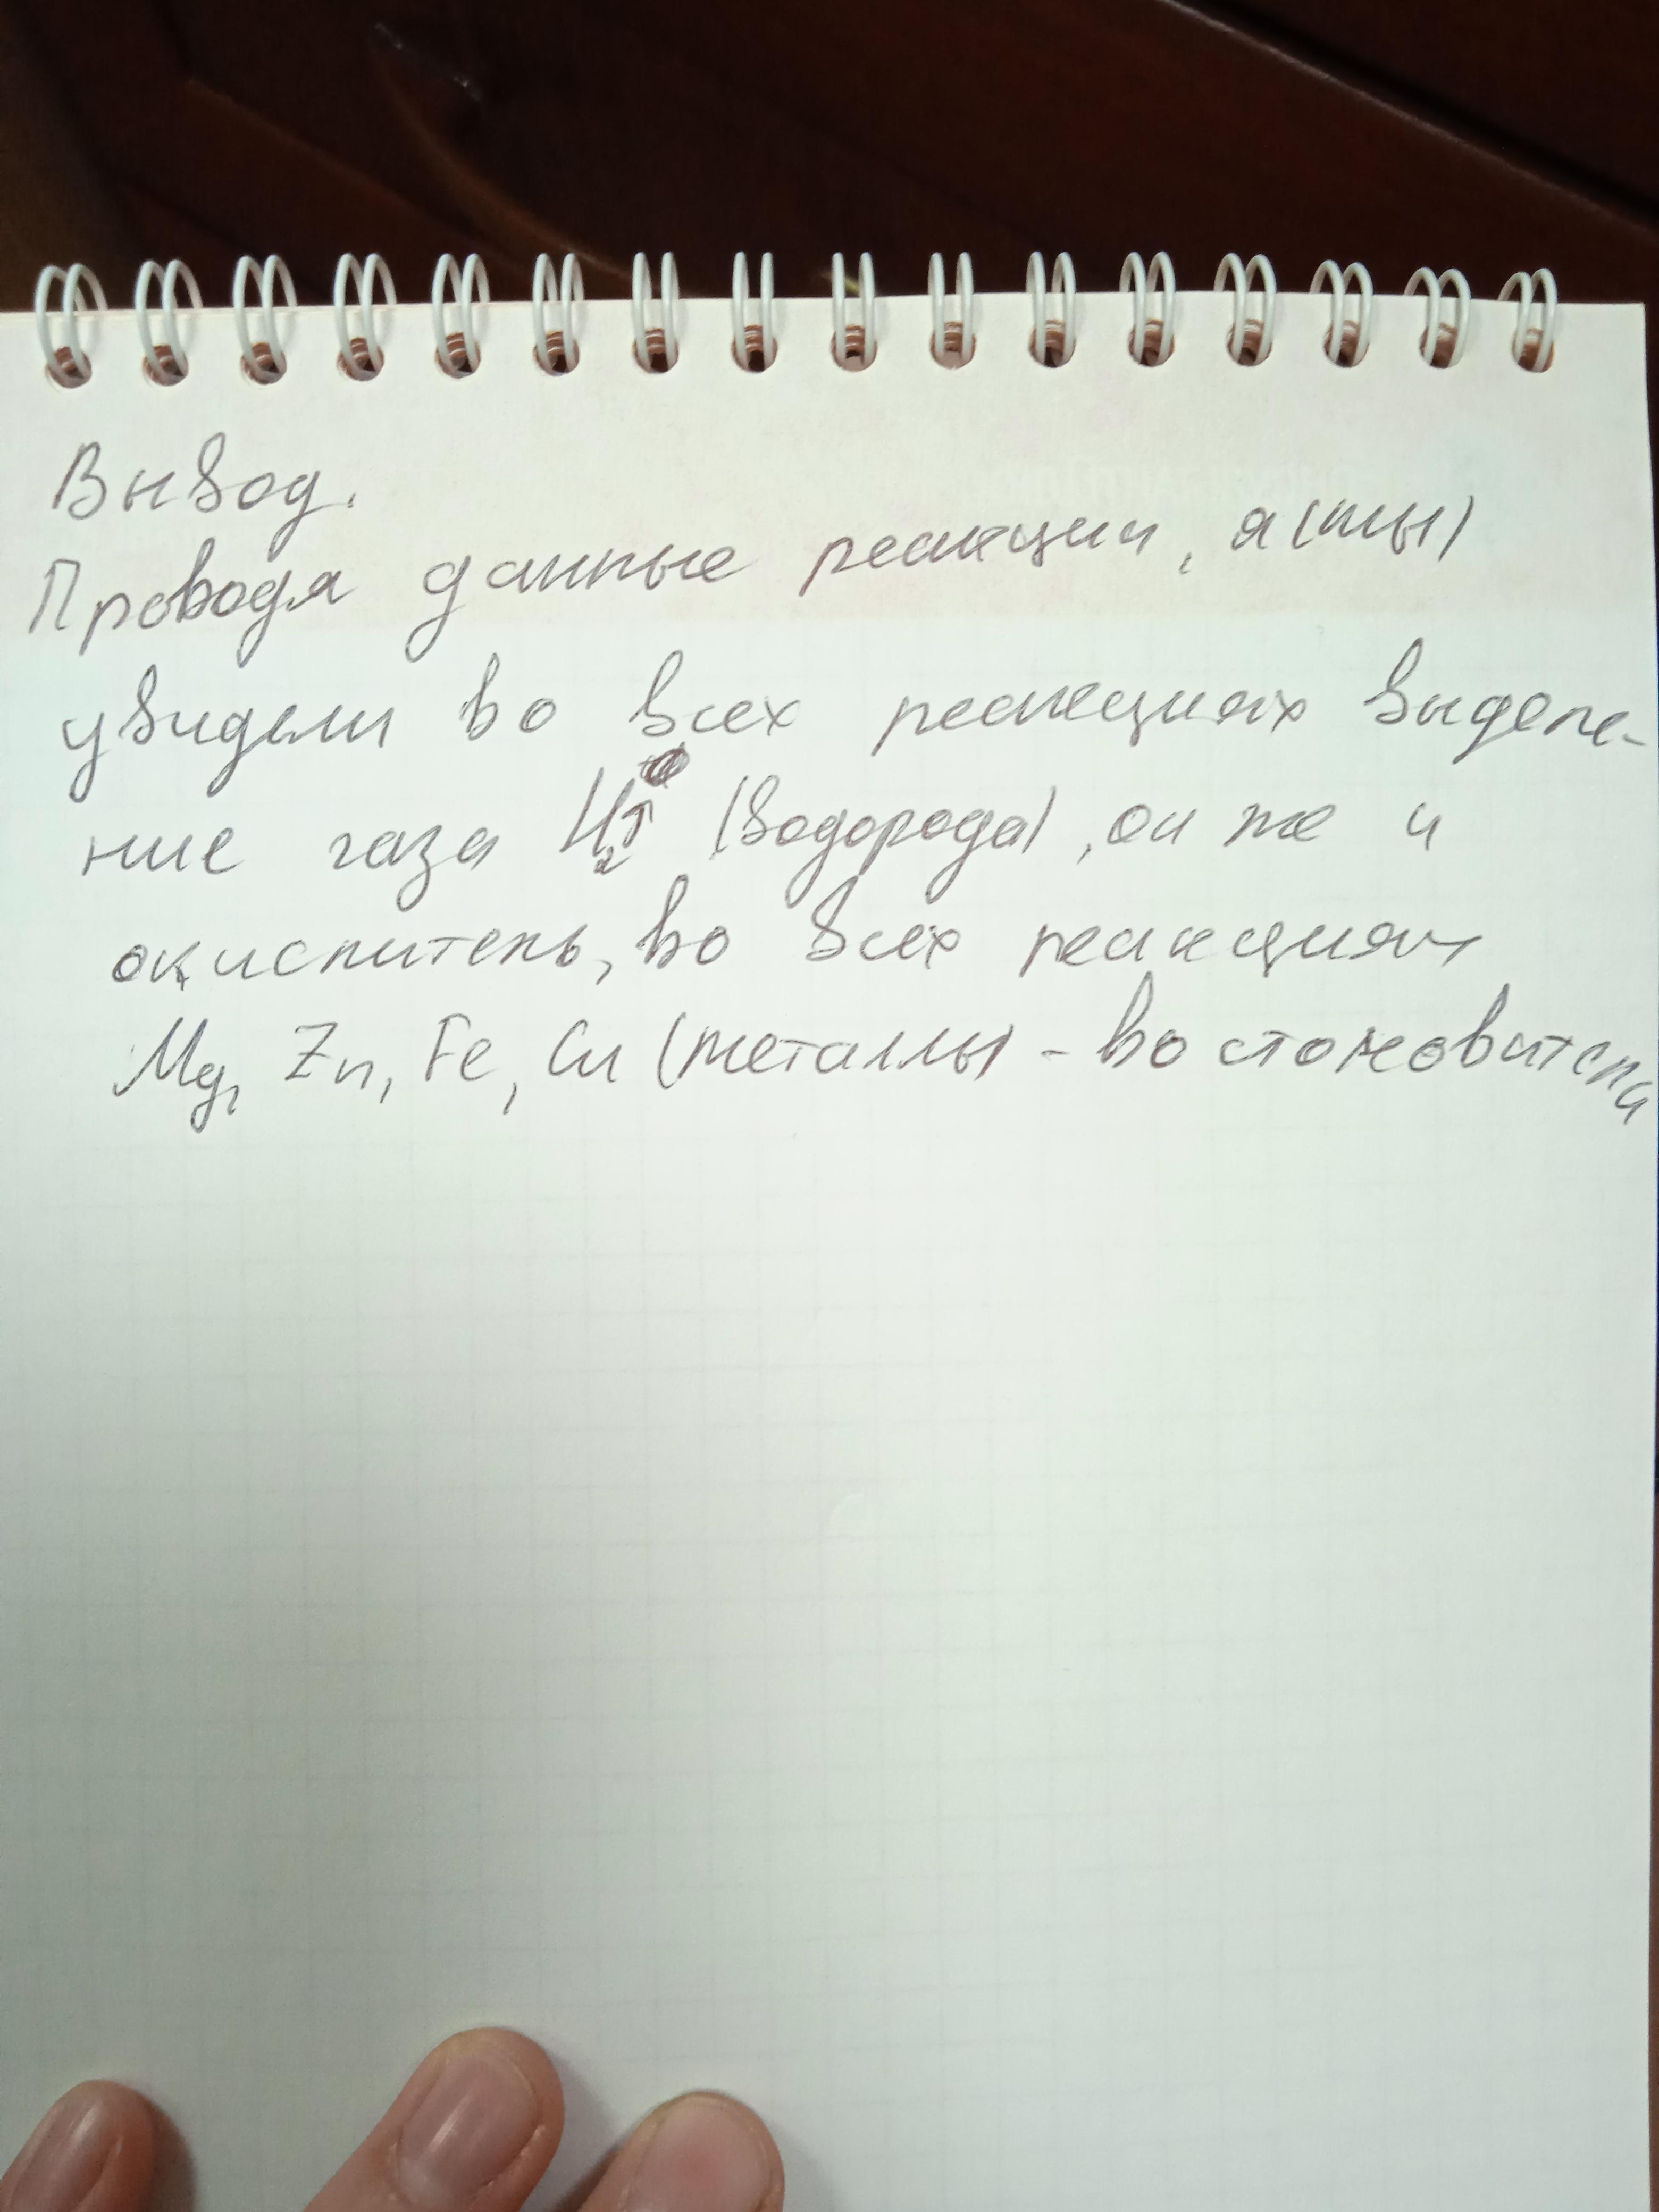 Вывод.
Проводя данные реакции, я(мы)
увидели во всех реакциях выделе-
ние газа H₂↑ (водорода), он же и
окислитель, во всех реакциях
Mg, Zn, Fe, Cu (металлы) - востоновители